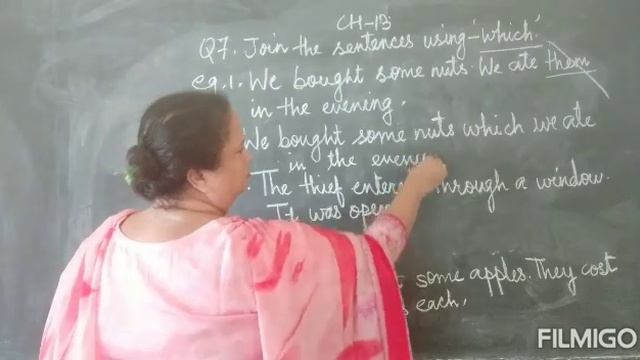 CH-13
Q7. Join the sentences using-'which.'
eg.1. We bought some nuts. We ate them
in the evening.
We bought some nuts which we ate
in the
The thief through a window.
It was
some apples. They cost
each.
FILMIGO